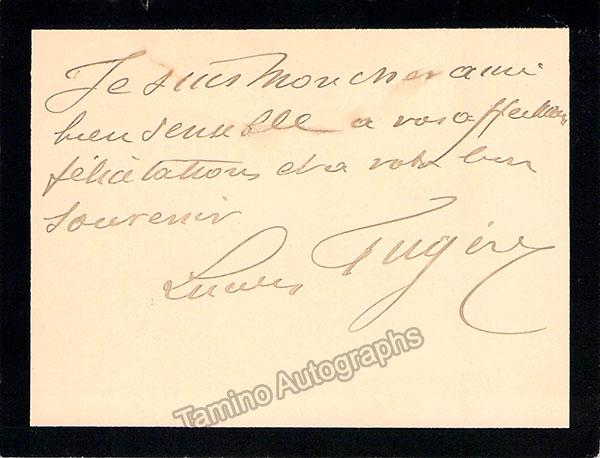 Je suis mon cher ami
bien sensible a vos affectueuses
félicitations et a votre bon
souvenir
Lucien Fugère
Tamino Autographs